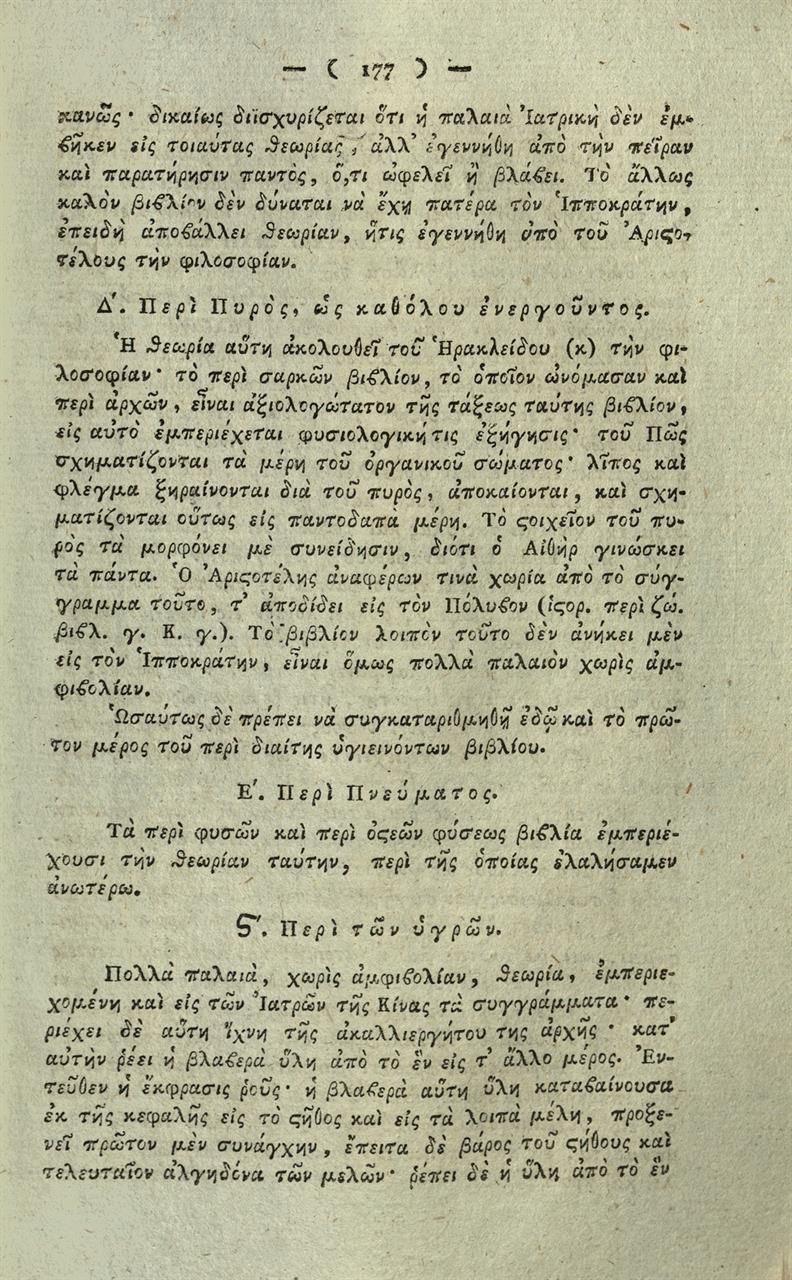 — ( 177 ) —
κανῶς · δικαίως διϊσχυρίζεται ὅτι ἡ παλαιὰ Ἰατρικὴ δὲν ἐμ-
βῆκεν εἰς τοιαύτας θεωρίας, ἀλλ' ἐγεννήθη ἀπὸ τὴν πεῖραν
καὶ παρατήρησιν παντὸς, ὅ,τι ὠφελεῖ ἢ βλάβει. Τὸ ἄλλως
καλὸν βιβλίον δὲν δύναται νὰ ἔχῃ πατέρα τὸν Ἱπποκράτην,
ἐπειδὴ ἀποβάλλει θεωρίαν, ἥτις ἐγεννήθη ἀπὸ τοῦ Ἀριϛο-
τέλους τὴν φιλοσοφίαν.
Δ΄. Περὶ Πυρὸς, ὡς καθόλου ἐνεργοῦντος.
Ἡ θεωρία αὕτη ἀκολουθεῖ τοῦ Ἡρακλείδου (κ) τὴν φι-
λοσοφίαν· τὸ περὶ σαρκῶν βιβλίον, τὸ ὁποῖον ὠνόμασαν καὶ
περὶ ἀρχῶν, εἶναι ἀξιολογώτατον τῆς τάξεως ταύτης βιβλίον,
εἰς αὐτὸ ἐμπεριέχεται φυσιολογική τις ἐξήγησις· τοῦ Πῶς
σχηματίζονται τὰ μέρη τοῦ ὀργανικοῦ σώματος· λῖπος καὶ
φλέγμα ξηραίνονται διὰ τοῦ πυρὸς, ἀποκαίονται, καὶ σχη-
ματίζονται οὕτως εἰς παντοδαπὰ μέρη. Τὸ ϛοιχεῖον τοῦ πυ-
ρὸς τὰ μορφόνει μὲ συνείδησιν, διότι ὁ Αἰθὴρ γινώσκει
τὰ πάντα. Ὁ Ἀριϛοτέλης ἀναφέρων τινὰ χωρία ἀπὸ τὸ σύγ-
γραμμα τοῦτο, τ' ἀποδίδει εἰς τὸν Πόλυβον (ἱϛορ. περὶ ζώ.
βιβλ. γ. Κ. γ.). Τὸ βιβλίον λοιπὸν τοῦτο δὲν ἀνήκει μὲν
εἰς τὸν Ἱπποκράτην, εἶναι ὅμως πολλὰ παλαιὸν χωρὶς ἀμ-
φιβολίαν.
Ὡσαύτως δὲ πρέπει νὰ συγκαταριθμηθῇ ἐδῷ καὶ τὸ πρῶ-
τον μέρος τοῦ περὶ διαίτης ὑγιεινόντων βιβλίου.
Ε΄. Περὶ Πνεύματος.
Τὰ περὶ φυσῶν καὶ περὶ ὀϛεῶν φύσεως βιβλία ἐμπεριέ-
χουσι τὴν θεωρίαν ταύτην, περὶ τῆς ὁποίας ἐλαλήσαμεν
ἀνωτέρω.
Ϛ΄. Περὶ τῶν ὑγρῶν.
Πολλὰ παλαιὰ, χωρὶς ἀμφιβολίαν, θεωρία, ἐμπεριε-
χομένη καὶ εἰς τῶν Ἰατρῶν τῆς Κίνας τὰ συγγράμματα· πε-
ριέχει δὲ αὕτη ἴχνη τῆς ἀκαλλιεργήτου της ἀρχῆς · κατ'
αὐτὴν ῥέει ἡ βλαβερὰ ὕλη ἀπὸ τὸ ἓν εἰς τ' ἄλλο μέρος. Ἐν-
τεῦθεν ἡ ἔκφρασις ῥοῦς· ἡ βλαβερὰ αὕτη ὕλη καταβαίνουσα
ἐκ τῆς κεφαλῆς εἰς τὸ ϛῆθος καὶ εἰς τὰ λοιπὰ μέλη, προξε-
νεῖ πρῶτον μὲν συνάγχην, ἔπειτα δὲ βάρος τοῦ ϛήθους καὶ
τελευταῖον ἀλγηδόνα τῶν μελῶν· ῥέπει δὲ ἡ ὕλη ἀπὸ τὸ ἓν